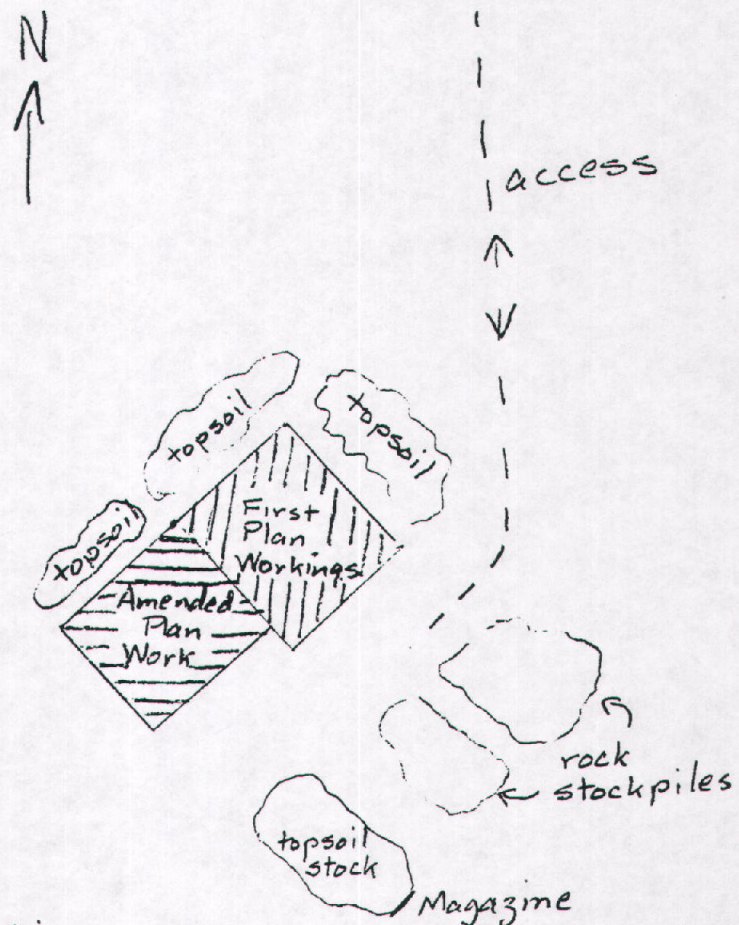 N
access
topsoil
topsoil
topsoil
First
Plan
Workings
Amended
Plan
Work
rock
stockpiles
topsoil
stock
Magazine